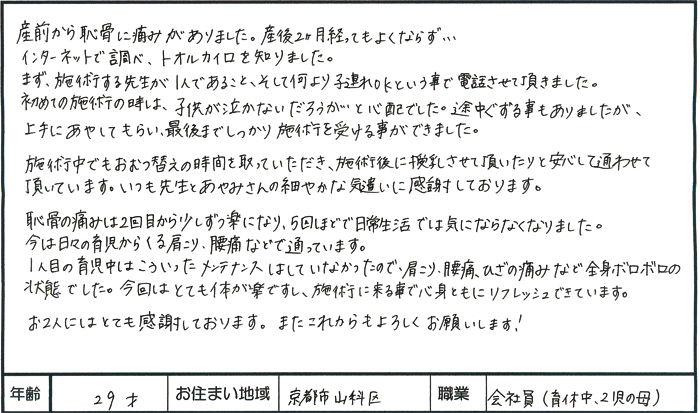 産前から恥骨に痛みがありました。産後2ヶ月経ってもよくならず…
インターネットで調べ、トオルカイロを知りました。
まず、施術する先生が1人であること、そして何より子連れOKという事で電話させて頂きました。
初めての施術の時は、子供が泣かないだろうかと心配でした。途中ぐずる事もありましたが、
上手にあやしてもらい、最後までしっかり施術を受ける事ができました。
施術中でもおむつ替えの時間を取っていただき、施術後に授乳させて頂いたりと安心して通わせて
頂いています。いつも先生とあやみさんの細やかな気遣いに感謝しております。
恥骨の痛みは2回目から少しずつ楽になり、5回ほどで日常生活では気にならなくなりました。
今は日々の育児からくる肩こり、腰痛などで通っています。
1人目の育児中はこういったメンテナンスはしていなかったので、肩こり、腰痛、ひざの痛みなど全身ボロボロの
状態でした。今回はとても体が楽ですし、施術に来る事で心身ともにリフレッシュできています。
お2人にはとても感謝しております。またこれからもよろしくお願いします!
年齢 29才 お住まい地域 京都市山科区 職業 会社員(育休中、2児の母)